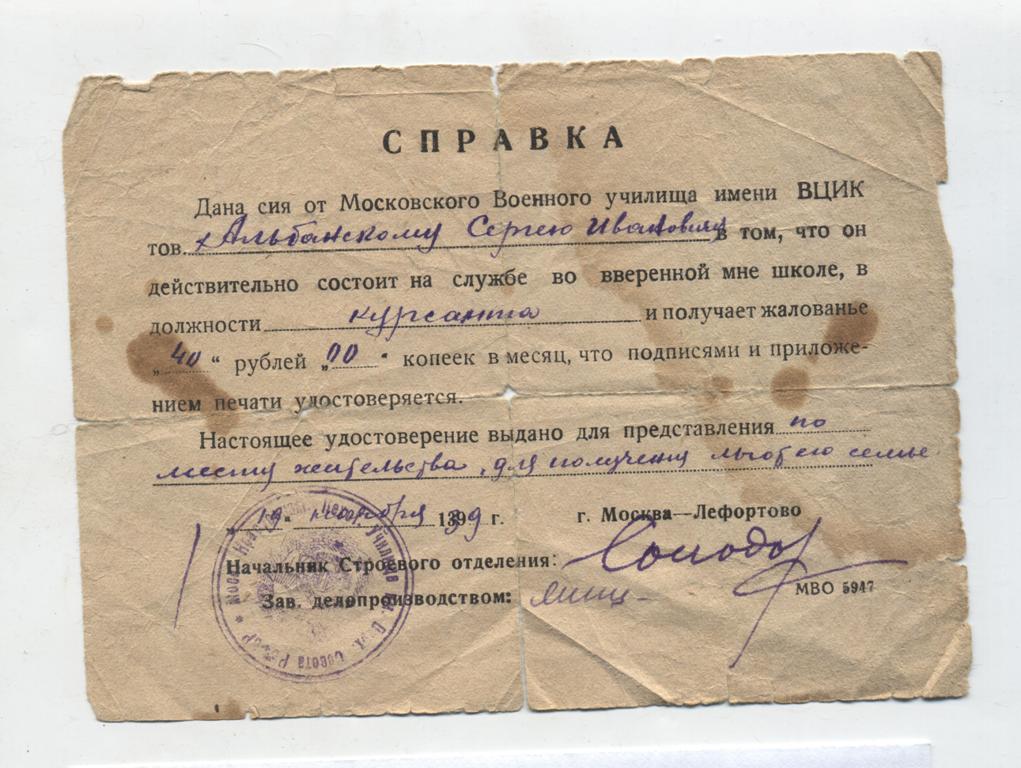 СПРАВКА
Дана сия от Московского Военного училища имени ВЦИК
тов. Альбанскому Сергею Ивановичу в том, что он
действительно состоит на службе во вверенной мне школе, в
должности курсанта и получает жалованье
„40“ рублей „00“ копеек в месяц, что подписями и приложе-
нием печати удостоверяется.
Настоящее удостоверение выдано для представления по
месту жительства, для получения льгот его семье
„19“ 1939 г. г. Москва—Лефортово
Начальник Строевого отделения:
Зав. делопроизводством: МВО 5947